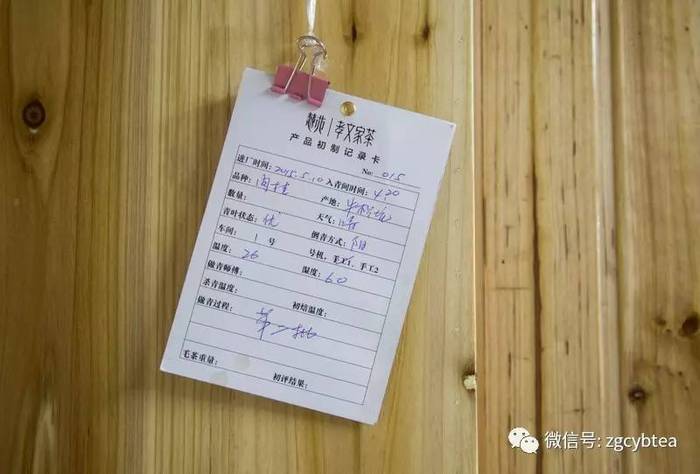 孝文家茶
产品初制记录卡
No: 015
进厂时间: 2015.5.10 入青间时间: 4.20
品种: 肉桂 产地: 牛栏坑
数量: 天气: 晴
青叶状态: 优 倒青方式: 阳
车间: 1 号 号机，手工1，手工2
温度: 26 湿度: 60
做青师傅:
杀青温度: 初焙温度:
做青过程: 第一批
毛茶重量: 初评结果:
微信号: zgcybtea